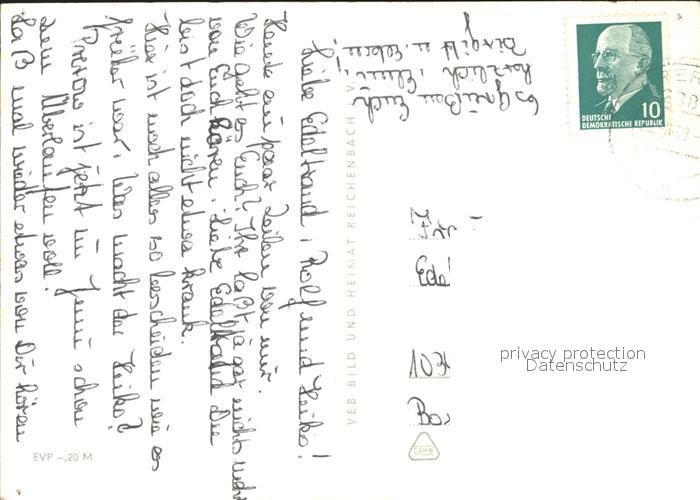 Liebe Edeltraud, Rolf und Heiko!
Heute ein paar Zeilen von mir.
Wie geht es Euch? Ihr laßt ja gar nichts mehr
von Euch hören. Liebe Edeltraud Du
bist doch nicht etwa krank.
Hier ist noch alles so bescheiden wie es
früher war. Was macht der Heiko?
ist jetzt im Juni schon
zum Überlaufen voll.
Laß mal wieder etwas von Dir hören
Es grüßen Euch
herzlich
Birgitt u. Eltern
VEB BILD UND HEIMAT REICHENBACH
EVP –,20 M
DEUTSCHE
DEMOKRATISCHE REPUBLIK
10
Ede
1034
privacy protection
Datenschutz